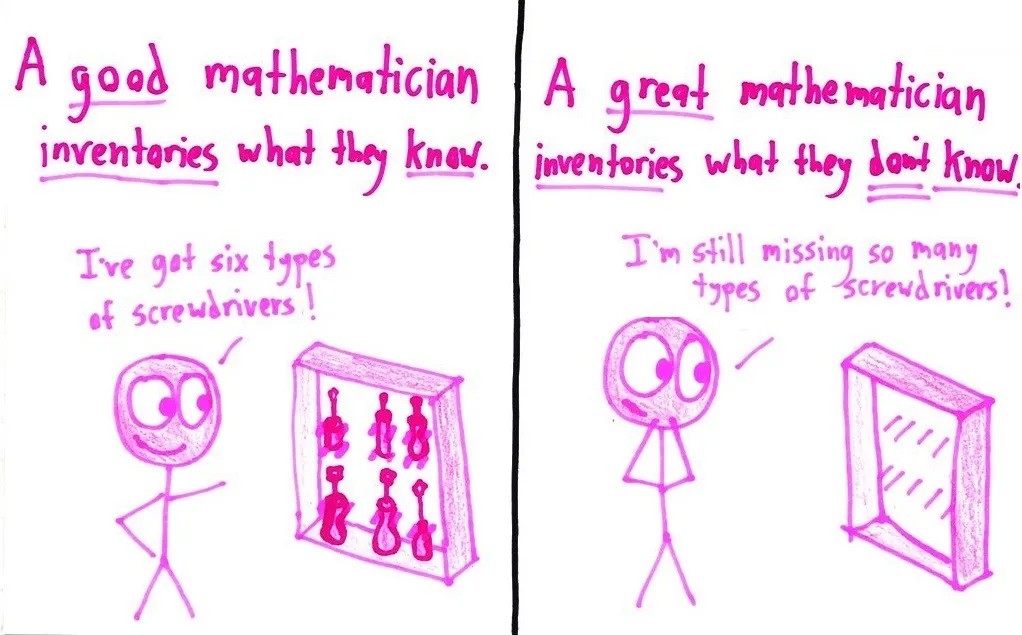 A good mathematician
inventories what they know.
I've got six types
of screwdrivers!
A great mathematician
inventories what they don't know.
I'm still missing so many
types of screwdrivers!